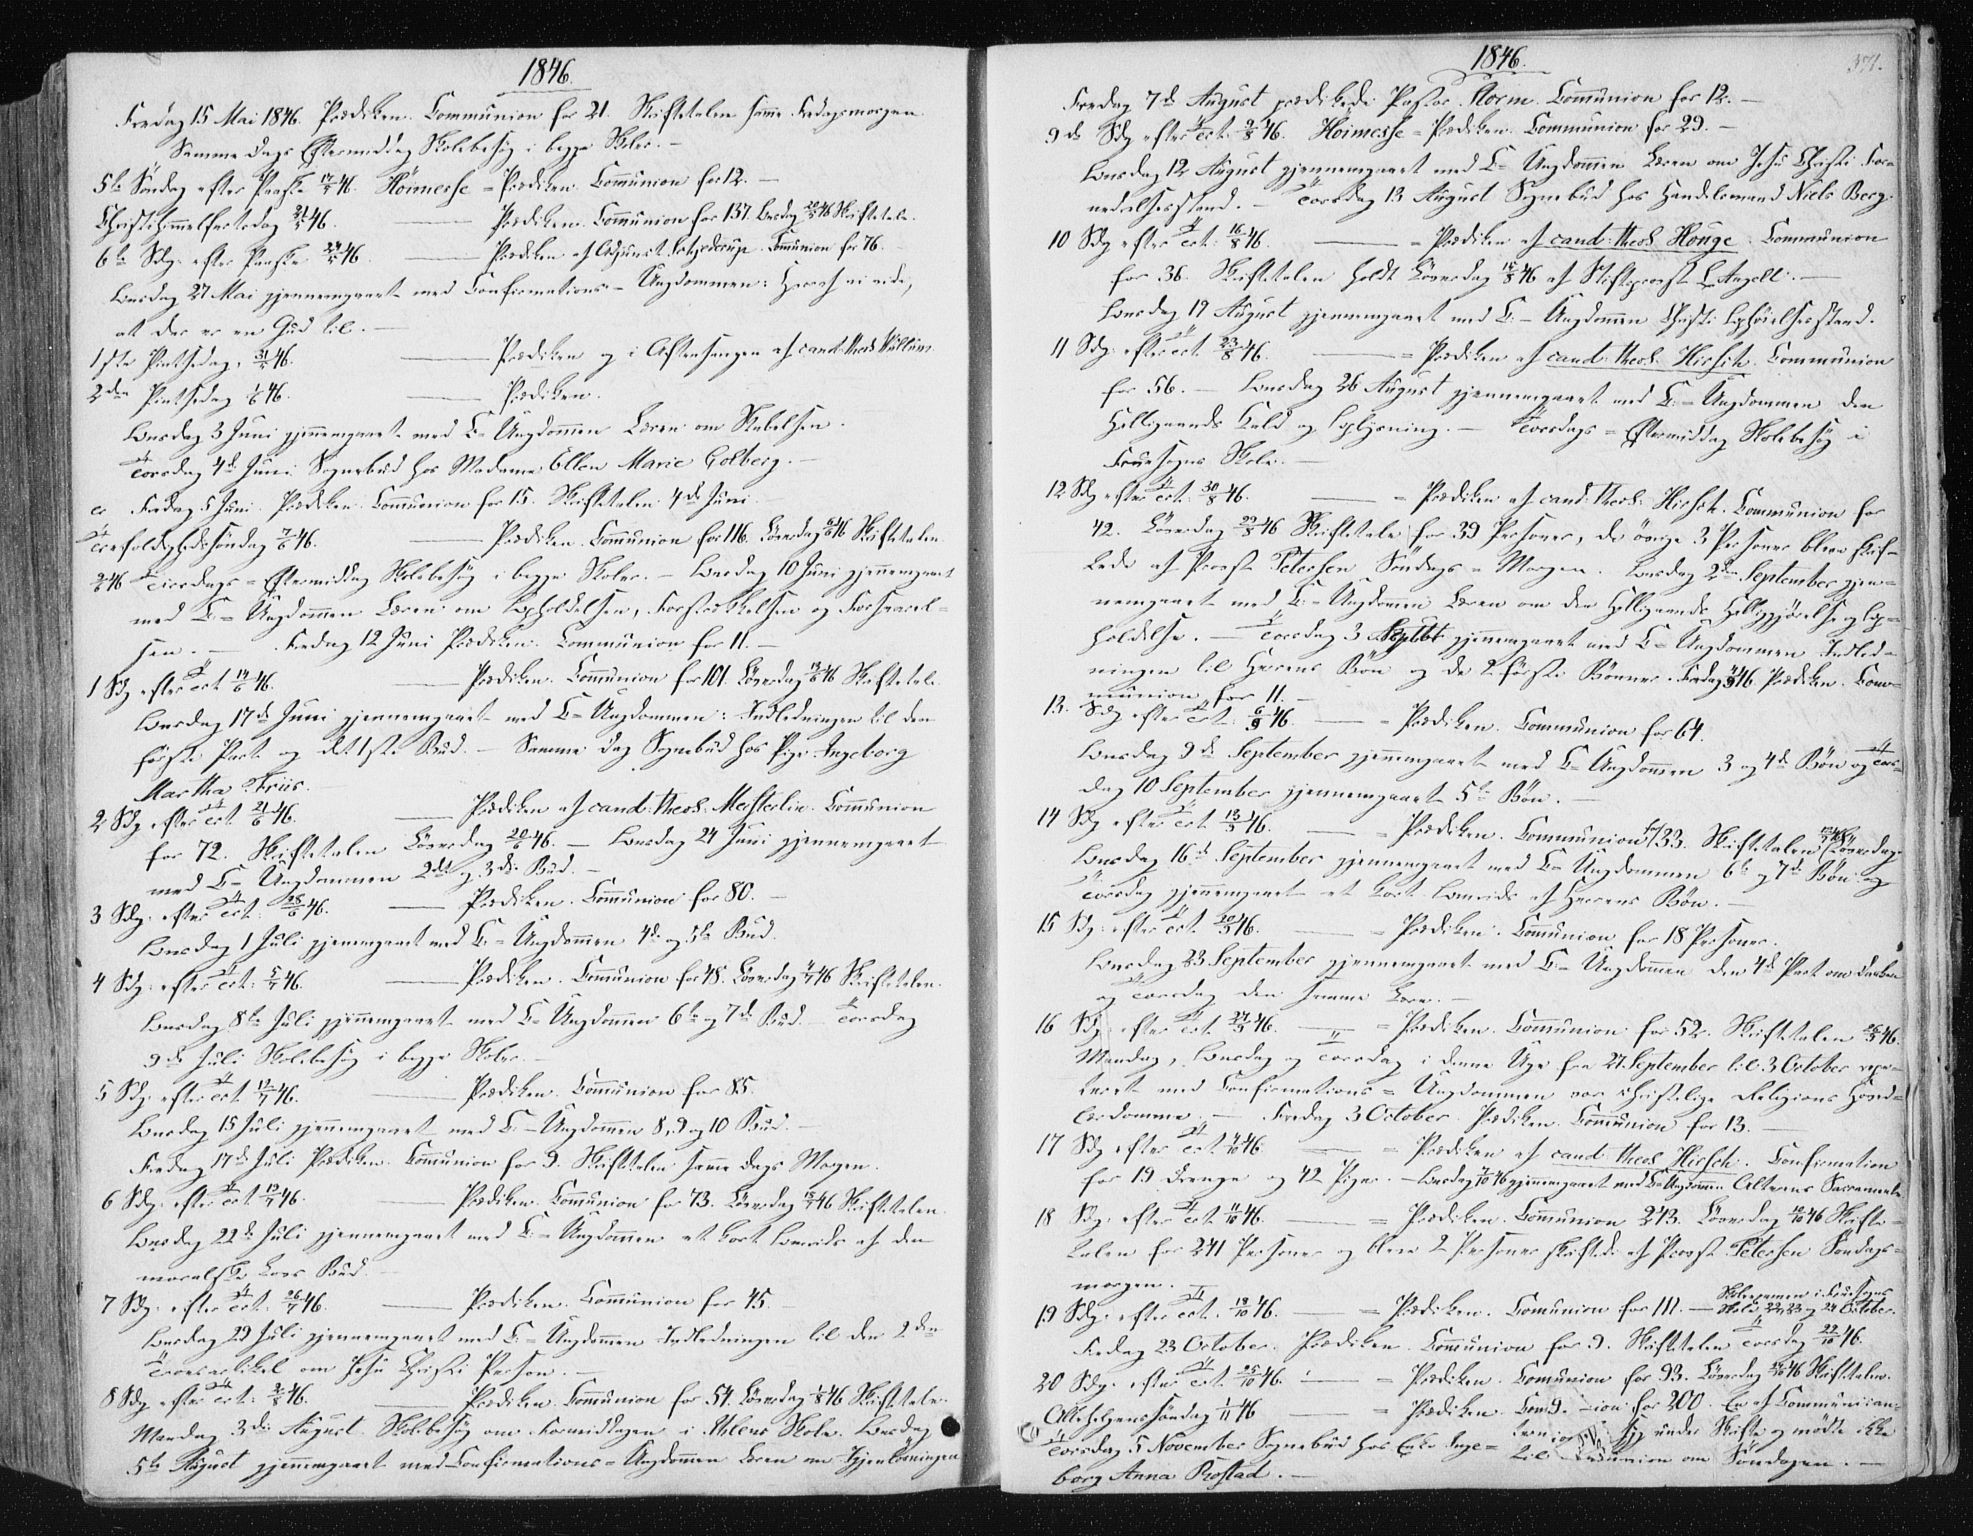 1846.
Fredag 15 Mai 1846. Prædiken. Communion for 21. Skriftetalen samme Fredagsmorgen.
Samme Dags Eftermiddag Skolebesøg i begge Skoler. —
5te Søndag efter Paaske 17/5 46. Höimesse = Prædiken. Communion for 12. —
Christi Himmelfartsdag 21/5 46. — Prædiken. Communion for 137. Onsdag 20/5 46 Skriftetale.
6te Sdg. efter Paaske 24/5 46. — Prædiken af Adjunct Communion for 76.
Onsdag 27 Mai gjennemgaaet med Confirmations-Ungdommen: Hvoraf vi vide,
at der er en Gud til. —
1ste Pintsedag, 31/5 46. — Prædiken og i Aftensangen af cand. theol. Wullum.
2den Pintsedag 1/6 46. — Prædiken.
Onsdag 3 Juni gjennemgaaet med C-Ungdommen Læren om Skabelsen.
Torsdag 4de Juni Sognebud hos Madame Ellen Marie Colberg. —
Fredag 5 Juni. Prædiken. Communion for 15. Skriftetalen 4de Juni.
Trefoldighedssøndag 7/6 46. — Prædiken. Communion for 116. Löverdag 6/6 46 Skriftetalen.
9/6 46 Tirsdags-Eftermiddag Skolebesøg i begge Skoler. — Onsdag 10 Juni gjennemgaaet
med C-Ungdommen Læren om Opholdelsen, Forsørgelsen og
sen. — Fredag 12 Juni Prædiken. Communion for 11. —
1 Sdg. efter Trt. 14/6 46. — Prædiken. Communion for 101. Löverdag 13/6 46 Skriftetale.
Onsdag 17de Juni gjennemgaaet med C-Ungdommen: Indledningen til den
første Part og det 1ste Bud. — Samme Dag Sognebud hos Pige Ingeborg
Martha Friis.
2 Sdg. efter Trt. 21/6 46. — Prædiken af cand. theol. Mechlin. Communion
for 72. Skriftetalen Löverdag 20/6 46. — Onsdag 24 Juni gjennemgaaet
med C-Ungdommen 2det og 3die Bud. —
3 Sdg. efter Trt. 28/6 46. — Prædiken. Communion for 80. —
Onsdag 1 Juli gjennemgaaet med C-Ungdommen 4de og 5te Bud.
4 Sdg. efter Trt. 5/7 46. — Prædiken. Communion for 48. Löverdag 4/7 46 Skriftetalen.
Onsdag 8de Juli gjennemgaaet med C-Ungdommen 6te og 7de Bud. Torsdag
9de Juli Skolebesøg i begge Skoler. —
5 Sdg. efter Trt. 12/7 46. — Prædiken. Communion for 85.
Onsdag 15 Juli gjennemgaaet med C-Ungdommen 8, 9 og 10 Bud. —
Fredag 17de Juli Prædiken. Communion for 9. Skriftetalen samme Dags Morgen.
6 Sdg. efter Trt. 19/7 46. — Prædiken. Communion for 73. Löverdag 18/7 46 Skriftetalen.
Onsdag 22de Juli gjennemgaaet med C-Ungdommen et kort Omrids af den
moralske Lovs Bud.
7 Sdg. efter Trt. 26/7 46. — Prædiken. Communion for 45. —
Onsdag 29 Juli gjennemgaaet med C-Ungdommen Indledningen til den 2den
Troesartikel om Jesu Christi Person. —
8 Sdg. efter Trt. 2/8 46. — Prædiken. Communion for 54. Löverdag 1/8 46 Skriftetale.
Mandag 3die August Skolebesøg om Formiddagen i Ihlens Skole. Onsdag
5te August gjennemgaaet med Confirmations-Ungdommen Læren om Igjenløsningen
1846.
371.
Fredag 7de August prædikede Pastor Storm. Communion for 12. —
9de Sdg. efter Trt. 9/8 46. Höimesse = Prædiken. Communion for 29. —
Onsdag 12 August gjennemgaaet med C-Ungdommen Læren om Jesu Christi For-
nedrelsesstand. — Torsdag 13 August Sognebud hos Handelsmand Niels Berg.
10 Sdg. efter Trt. 16/8 46. — Prædiken af cand. theol. Houge. Communion
for 36. Skriftetalen holdt Löverdag 15/8 46 af Stiftsprovst L'Angell. —
Onsdag 19 August gjennemgaaet med C-Ungdommen Christi Ophøielsesstand.
11 Sdg. efter Trt. 23/8 46. — Prædiken af cand. theol. Hirsch. Communion
for 56. — Onsdag 26 August gjennemgaaet med C-Ungdommen den
Helligaands Kald og Oplysning. — Torsdags-Eftermiddag Skolebesøg i
Fruesogns Skole. —
12 Sdg. efter Trt. 30/8 46. — Prædiken af cand. theol. Hirsch. Communion for
42. Löverdag 29/8 46 Skriftetale for 39 Personer, de øvrige 3 Personer bleve skrif-
tede af Provst Petersen Søndags-Morgen. Onsdag 2den September gjen-
nemgaaet med C-Ungdommen Læren om den Helligaands Helliggjørelse og Op-
holdelse. — Torsdag 3 Septbr gjennemgaaet med C-Ungdommen Indled-
ningen til Herrens Bøn og de 2 første Bønner. Fredag 4/9 46 Prædiken. Com-
munion for 11. —
13. Sdg. efter Trt. 6/9 46. — Prædiken. Communion for 64.
Onsdag 9de September gjennemgaaet med C-Ungdommen 3 og 4de Bøn og Tors-
dag 10 September gjennemgaaet 5te Bøn. —
14 Sdg. efter Trt. 13/9 46. — Prædiken. Communion for 133. Skriftetalen Löverdag 12/9 46.
Onsdag 16de September gjennemgaaet med C-Ungdommen 6te og 7de Bøn og
Torsdag gjennemgaaet et kort Omrids af Herrens Bøn. —
15 Sdg. efter Trt. 20/9 46. — Prædiken. Communion for 18 Personer.
Onsdag 23 September gjennemgaaet med C-Ungdommen den 4de Part om Daaben
og Torsdag den samme Lære. —
16 Sdg. efter Trt. 27/9 46. — Prædiken. Communion for 52. Skriftetalen 26/9 46.
Mandag, Onsdag og Torsdag i denne Uge fra 27 September til 3 October repe-
teret med Confirmations-Ungdommen vor christelige Religions Hoved-
lærdomme. — Fredag 3 October. Prædiken. Communion for 13. —
17 Sdg. efter Trt. 4/10 46. — Prædiken af cand. theol. Hirsch. Confirmation
for 19 Drenge og 42 Piger. — Onsdag 7/10 46 gjennemgaaet med C-Ungdommen Alterens Sacramente
18 Sdg. efter Trt. 11/10 46. — Prædiken. Communion 243. Löverdag 10/10 46 Skrifte-
talen for 241 Personer og bleve 2 Personer skriftede af Provst Petersen Søndags-
morgen. —
19 Sdg. efter Trt. 18/10 46. — Prædiken. Communion for 111. — Skoleexamen i Fruesogns
Skole 22, 23 og 24 October.
Fredag 23 October. Prædiken. Communion for 9. Skriftetalen Torsdag 22/10 46.
20 Sdg. efter Trt. 25/10 46. — Prædiken. Communion for 93. Löverdag 24/10 46 Skriftetalen.
Allehelgenssøndag 1/11 46 — Prædiken. Com-ion for 200. En af Communican-
terne syg under Skrifte og mødte ikke
til Communion om Søndagen. —
Torsdag 5 November Sognebud hos Enke Inge-
borg Anna Rostad. —